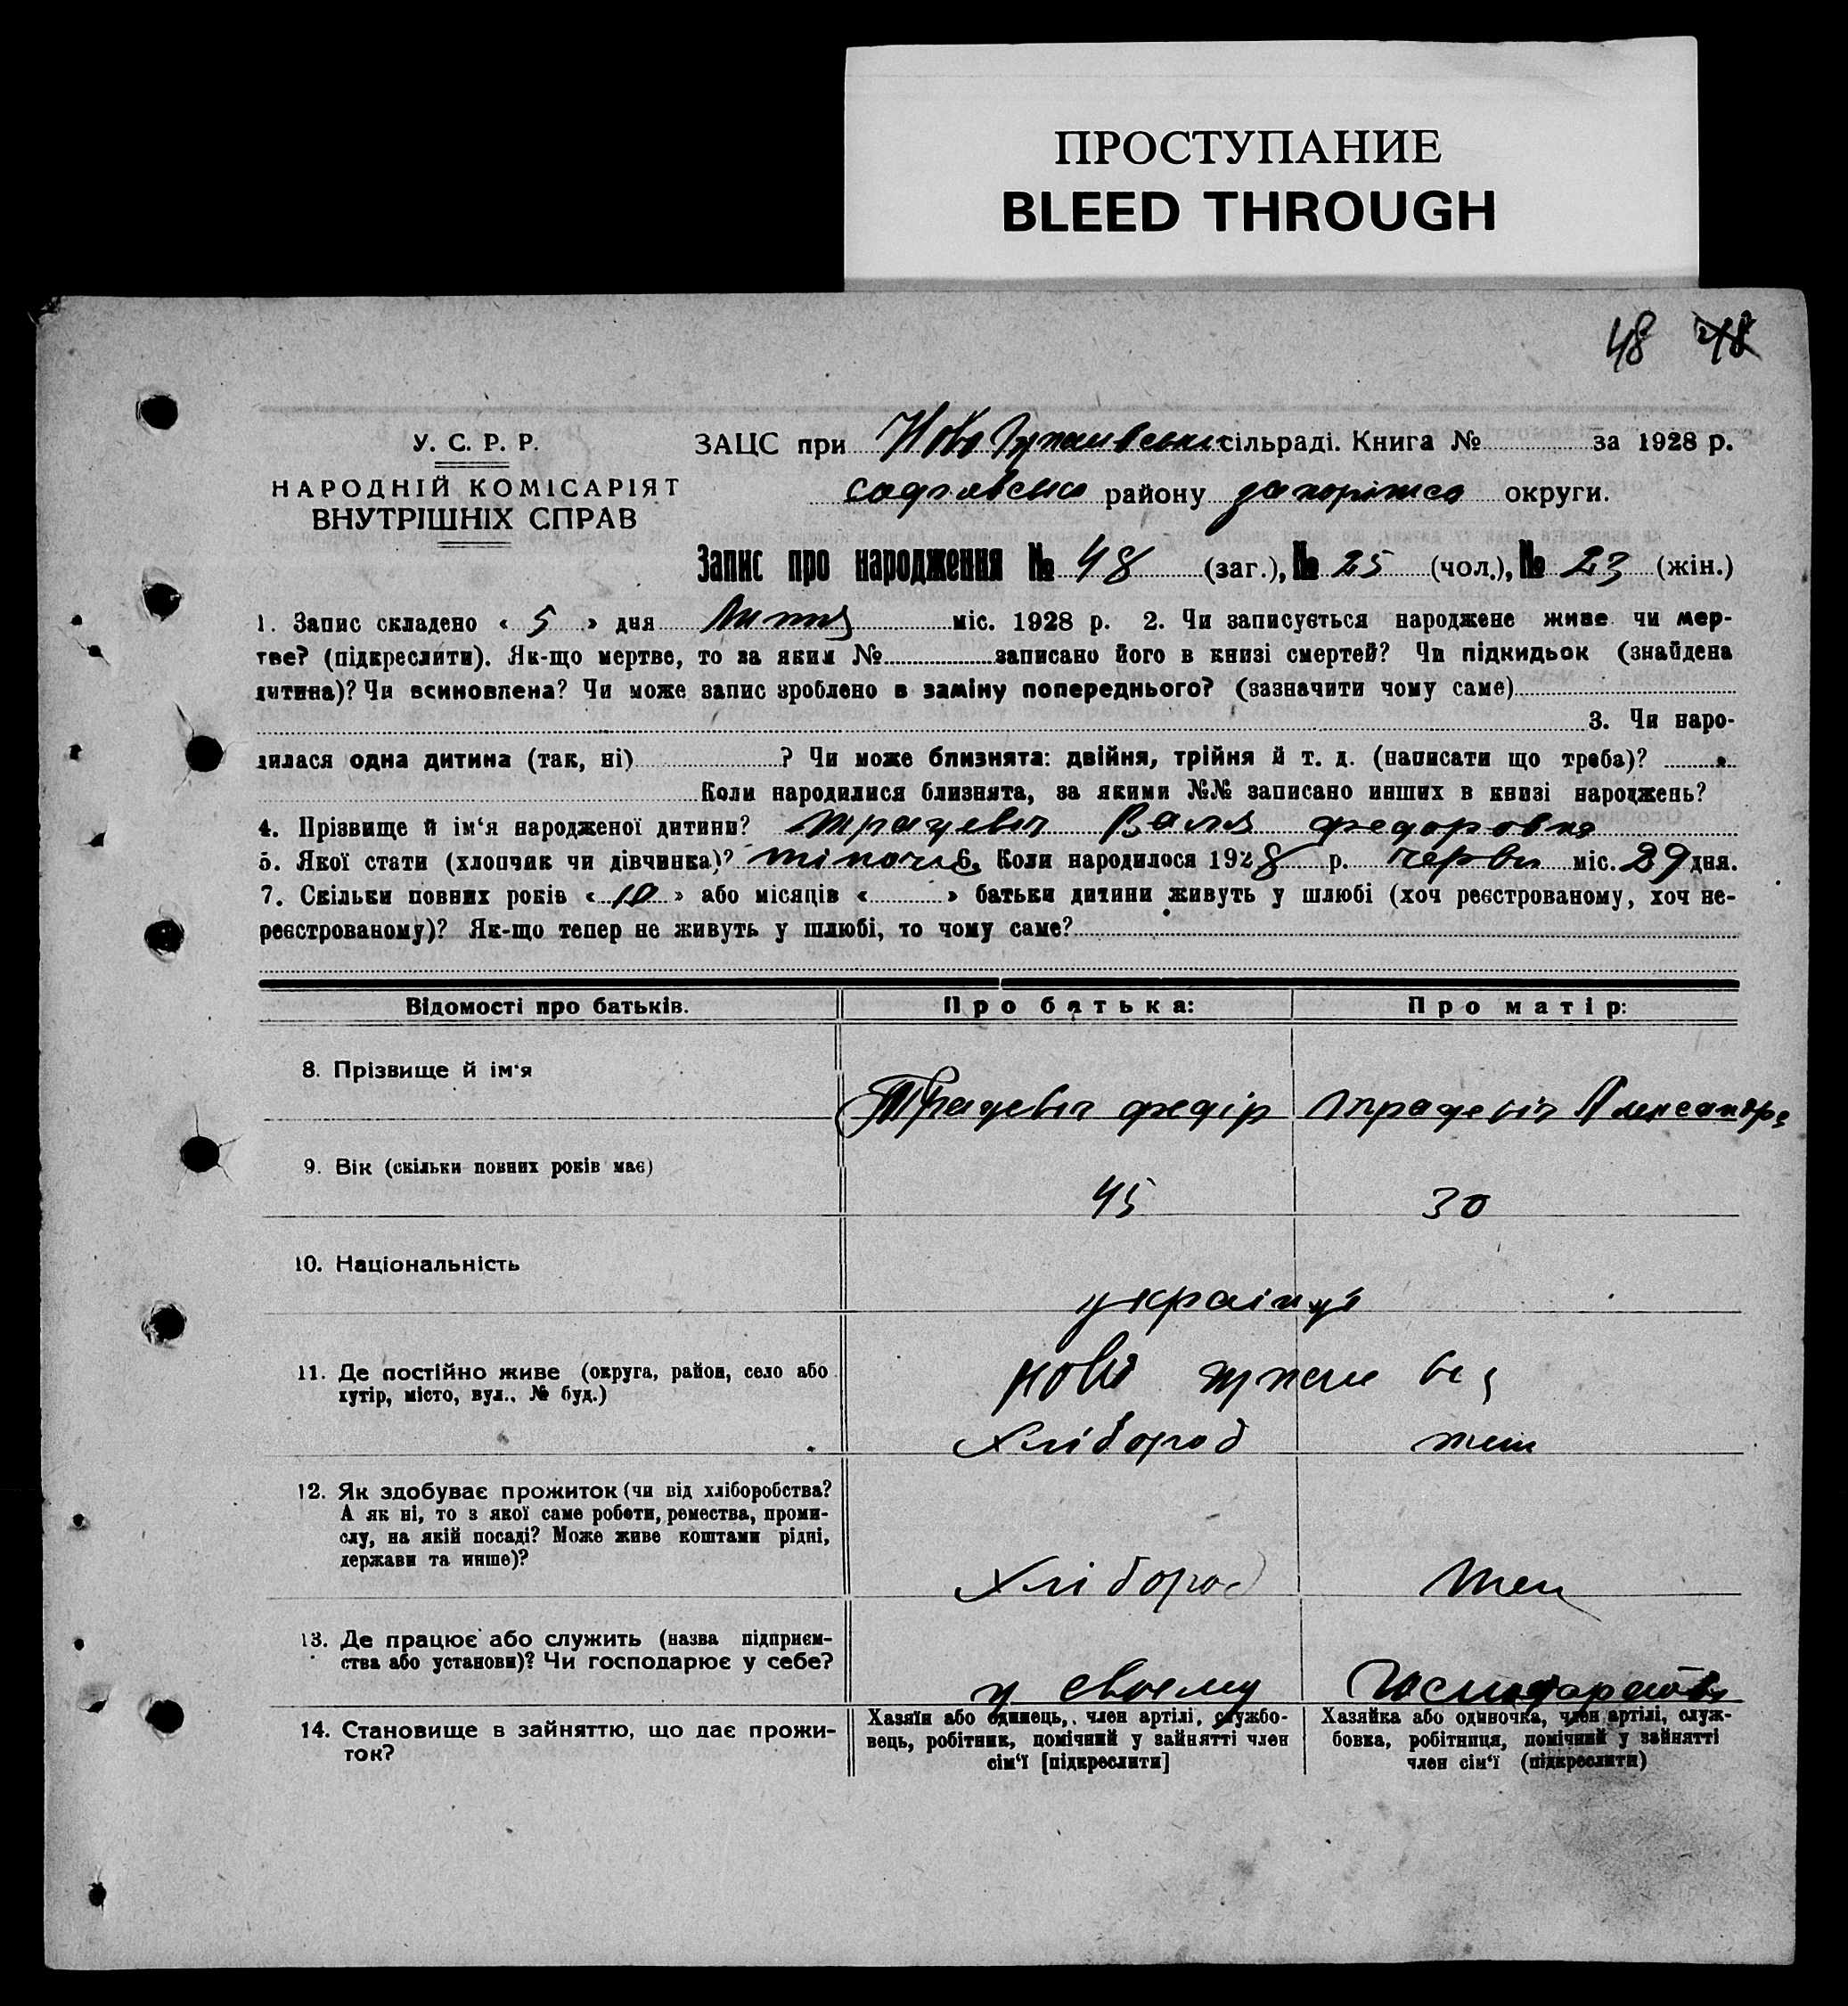 ПРОСТУПАНИЕ
BLEED THROUGH
48 48
У. С. Р. Р.
НАРОДНІЙ КОМІСАРІЯТ
ВНУТРІШНІХ СПРАВ
ЗАЦС при Ново сільраді. Книга № за 1928 р.
району округи.
Запис про народження № 48 (заг.), № 25 (чол.), № 23 (жін.)
1. Запис складено « 5 » дня Липня міс. 1928 р. 2. Чи записується народжене живе чи мер-
тве? (підкреслити). Як-що мертве, то за яким № записано його в книзі смертей? Чи підкидьок (знайдена
дитина)? Чи всиновлена? Чи може запис зроблено в заміну попереднього? (зазначити чому саме)
3. Чи наро-
дилася одна дитина (так, ні) ? Чи може близнята: двійня, трійня й т. д. (написати що треба)?
Коли народилися близнята, за якими №№ записано инших в книзі народжень?
4. Прізвище й ім‘я народженої дитини? Трацевич Валя Федоровна
5. Якої стати (хлопчик чи дівчинка)? 6. Коли народилося 1928 р. червн міс. 29 дня.
7. Скільки повних років « 10 » або місяців « » батьки дитини живуть у шлюбі (хоч реєстрованому, хоч не-
реєстрованому)? Як-що тепер не живуть у шлюбі, то чому саме?
Відомості про батьків. Про батька: Про матір:
8. Прізвище й ім‘я
Трацевич Федір Трацевіч Александра
9. Вік (скільки повних років має)
45 30
10. Національність
українці
11. Де постійно живе (округа, район, село або
хутір, місто, вул., № буд.)
ново
Хлібороб
12. Як здобуває прожиток (чи від хліборобства?
А як ні, то з якої саме роботи, ремества, проми-
слу, на якій посаді? Може живе коштами рідні,
держави та инше)?
Хлібороб
13. Де працює або служить (назва підприєм-
ства або установи)? Чи господарює у себе?
у своєму Господарстві
14. Становище в зайняттю, що дає прожи-
ток?
Хазяїн або одинець, член артілі, службо-
вець, робітник, помічний у зайнятті член
сім‘ї [підкреслити]
Хазяйка або одиночка, член артілі, служ-
бовка, робітниця, помічний у зайнятті
член сім‘ї (підкреслити)